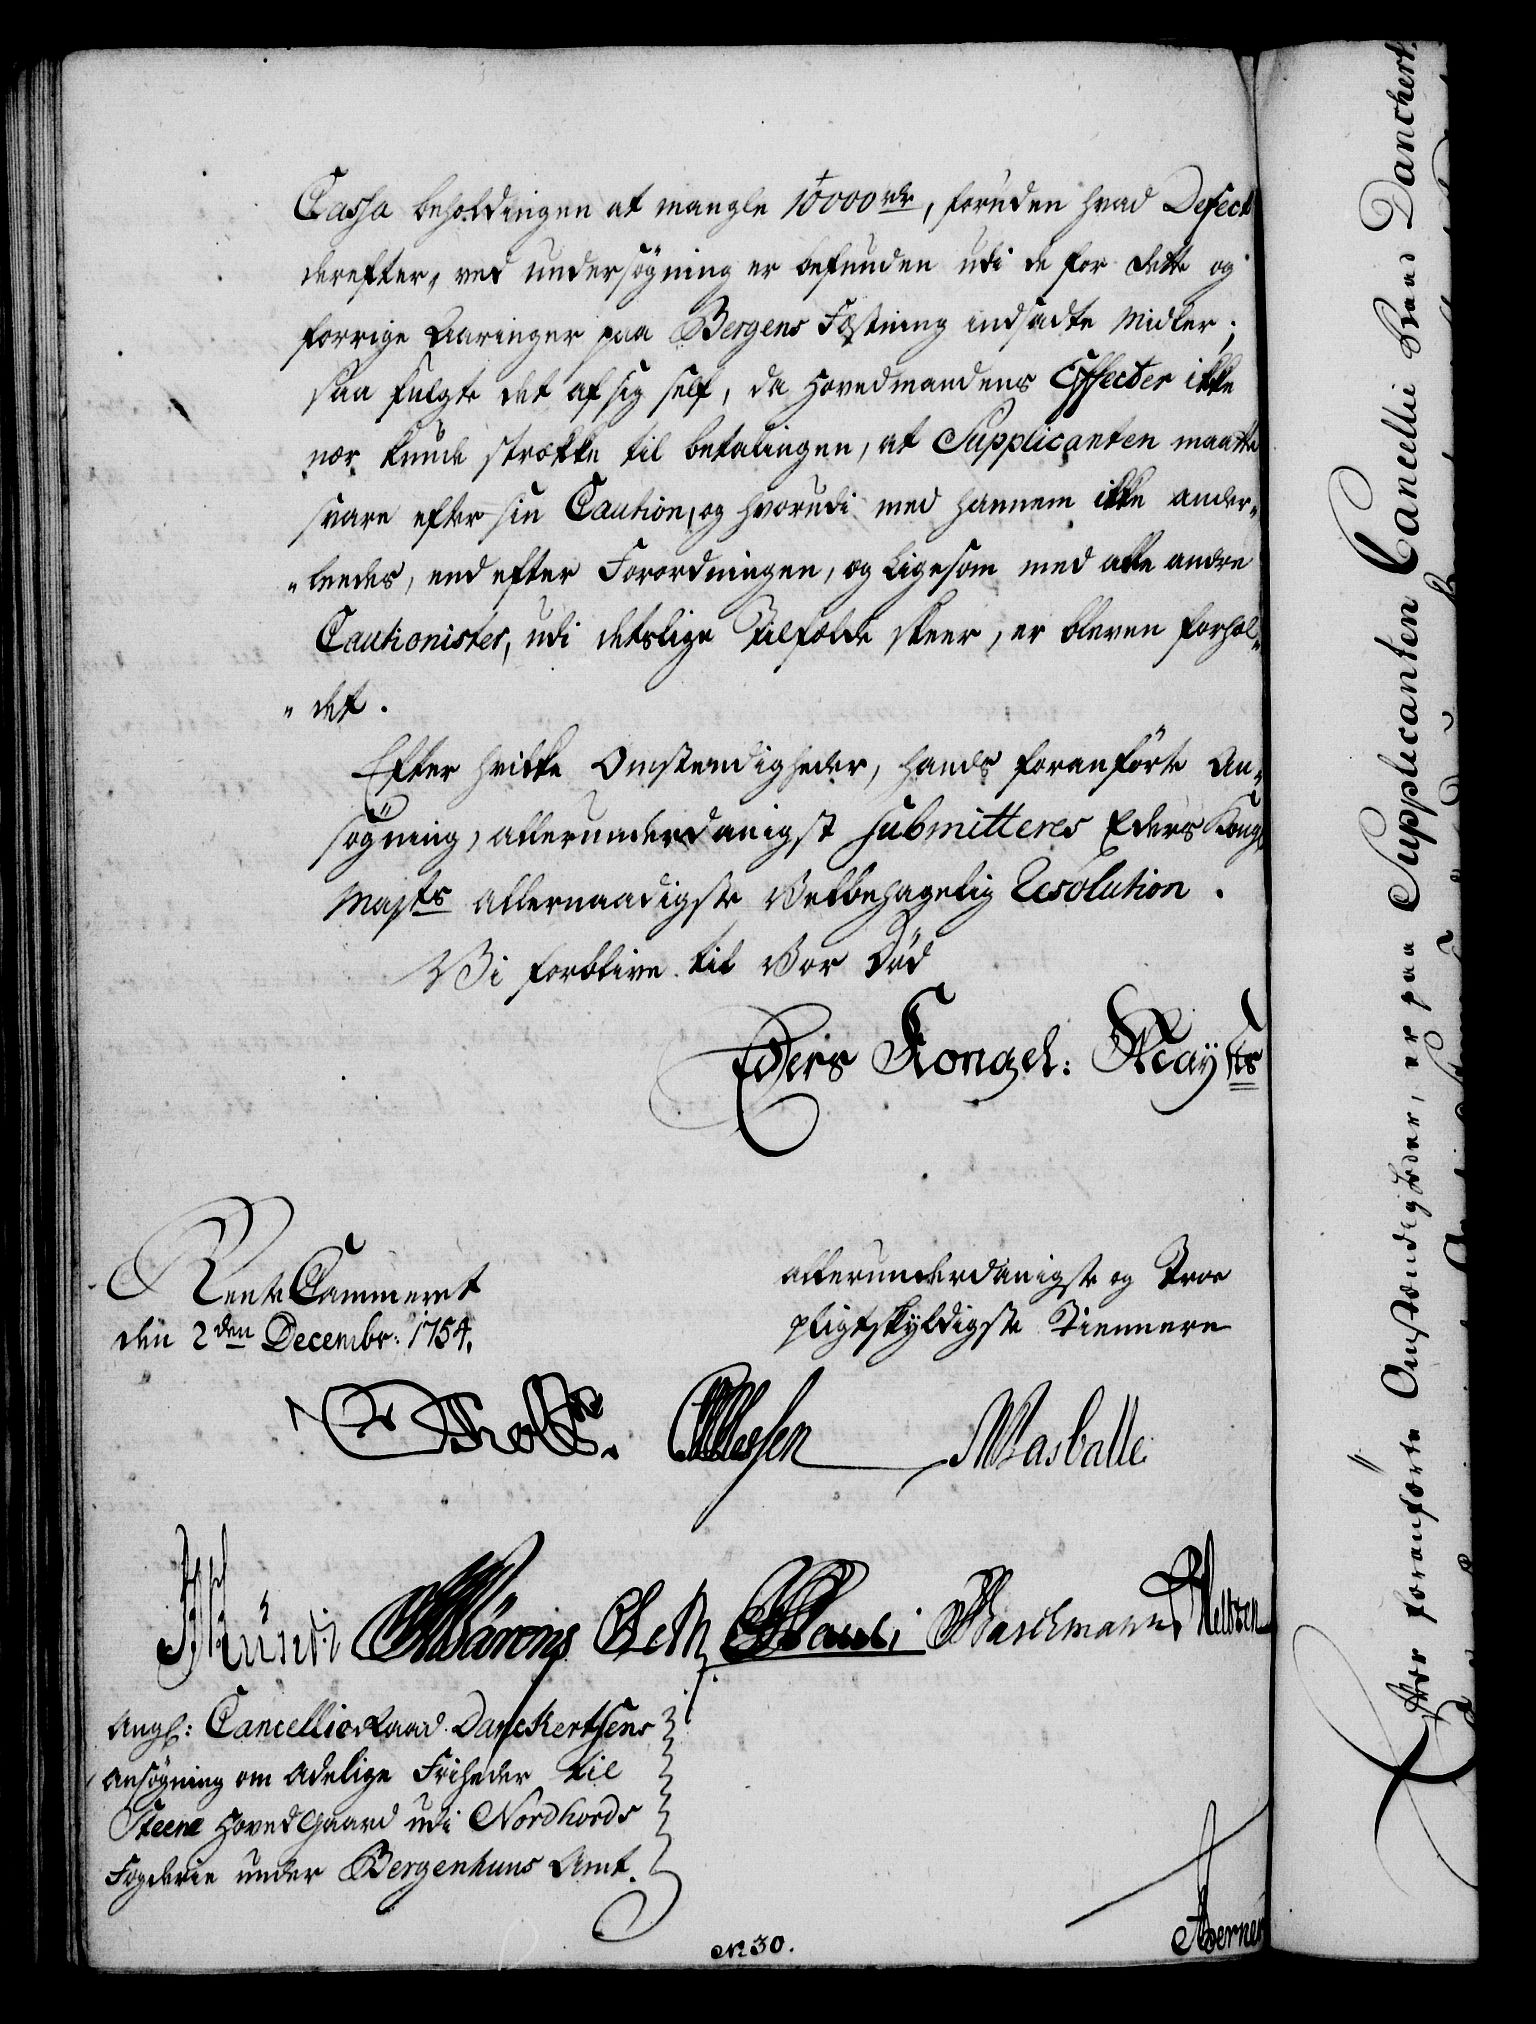 Cassa beholdingen at mangle 10000 rdr, foruden hvad Defect
derefter, ved undersøgning er befunden udi de for dette og
forrige Aaringer paa Bergens Fæstning indsadte Midler;
saa fulgte det af sig self, da Hovedmandens Effecter ikke
nær kunde strække til betalingen, at Supplicanten maatte
svare efter sin Caution, og hvorudi med hannem ikke ander-
"leedes, end efter Forordningen, og ligesom med alle andre
Cautionister, udi deslige Tilfælde skeer, er bleven forhol-
"det.
Efter hvilke Omstændigheder, hands foranførte An-
søgning, allerunderdanigst submitteres Eders Kongl
Majts allernaadigste Velbehagelig Resolution.
Vi forblive til Vor Død
Eders Kongel: Mayts
Rente Cammeret
den 2den Decembr: 1754.
allerunderdanigste og Troe
pligtskyldigste Tiennere
Masballe
Pauli Waschmann
Ang: Cancellie Raad Danckertsens
Ansøgning om Adelige Friheder til
Steene Hoved Gaard udi Nordhords
Fogderie under Bergenhuus Amt.
No 30.
foranførte Omstændigheder, er paa Supplicanten Cancellie Raad Danckert